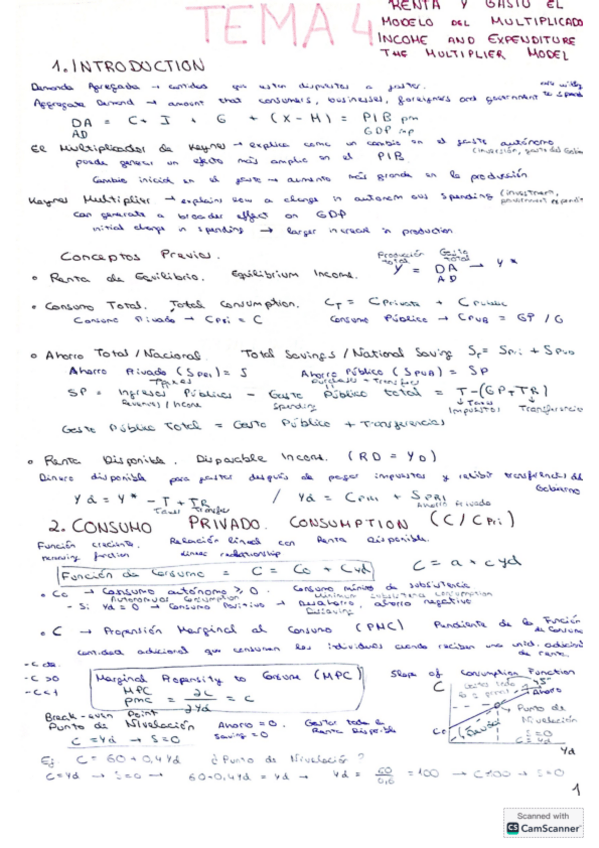 TEMA 4
RENTA Y GASTO EL
MODELO DEL MULTIPLICADO
INCOME AND EXPENDITURE
THE MULTIPLIER MODEL
1. INTRODUCTION
Demanda Agregada → cantidad que están dispuestos a gastar.
Aggregate Demand → amount that consumers, businesses, foreigners and government are willing to spend
DA = C + I + G + (X - M) = PIB pm
AD GDP mp
El Multiplicador de Keynes → explica como un cambio en el gasto autónomo (inversión, gasto del Gobierno
puede generar un efecto más amplio en el PIB.
Cambio inicial en el gasto → aumento más grande en la producción
Keynes Multiplier → explains how a change in autonomous spending (investment, government expendit
can generate a broader effect on GDP
initial change in spending → larger increase in production
Conceptos Previos.
• Renta de Equilibrio. Equilibrium Income. Y = DA → Y*
Producción total Gasto total
AD
• Consumo Total. Total Consumption. CT = CPrivate + CPublic
Consumo Privado → CPri = C Consumo Público → CPUB = GP / G
• Ahorro Total / Nacional. Total Savings / National Saving ST = SPri + SPUB
Ahorro Privado (SPRI) = S Ahorro Público (SPUB) = SP
Taxes Purchases + Transfers
SP = Ingresos Públicos - Gasto Público total = T - (GP + TR)
Revenues / Income Spending Taxes
Impuestos Transferencia
Gasto Público Total = Gasto Público + Transferencias
• Renta Disponible. Disposable Income. (RD = YD)
Dinero disponible para gastar después de pagar impuestos y recibir transferencias del Gobierno
Yd = Y* - T + TR / Yd = CPRI + SPRI
Taxes Transfer Ahorro Privado
2. CONSUMO PRIVADO. CONSUMPTION (C / CPri)
Función creciente. Relación lineal con Renta Disponible.
function linear relationship
Función de Consumo = C = C0 + cYd C = a + cyd
• C0 → Consumo autónomo ≥ 0. Consumo mínimo de subsistencia
Autonomous Consumption Minimum subsistence consumption
- Si Yd = 0 → Consumo Positivo → Desahorro, ahorro negativo
Dissaving
• C → Propensión Marginal al Consumo (PMC) Pendiente de la Función de Consumo
cantidad adicional que consumen los individuos cuando reciben una unid. adicional de renta.
- C >0
- C <1
Marginal Propensity to Consume (MPC)
MPC
pmc = ∂C / ∂Yd = c
Slope of Consumption Function
C 45°
Ahorro
Punto de Nivelación
S = 0
C = Yd
C0
Yd
Break-even Point
Punto de Nivelación Ahorro = 0. Gastar toda la
C = Yd → S = 0 Saving = 0 Renta Disponible
Ej. C = 60 + 0,4Yd ¿Punto de Nivelación?
C = Yd → S = 0 → 60 + 0,4Yd = Yd → Yd = 60/0,6 = 100 → C = 100 → S = 0
1
Scanned with
CS CamScanner